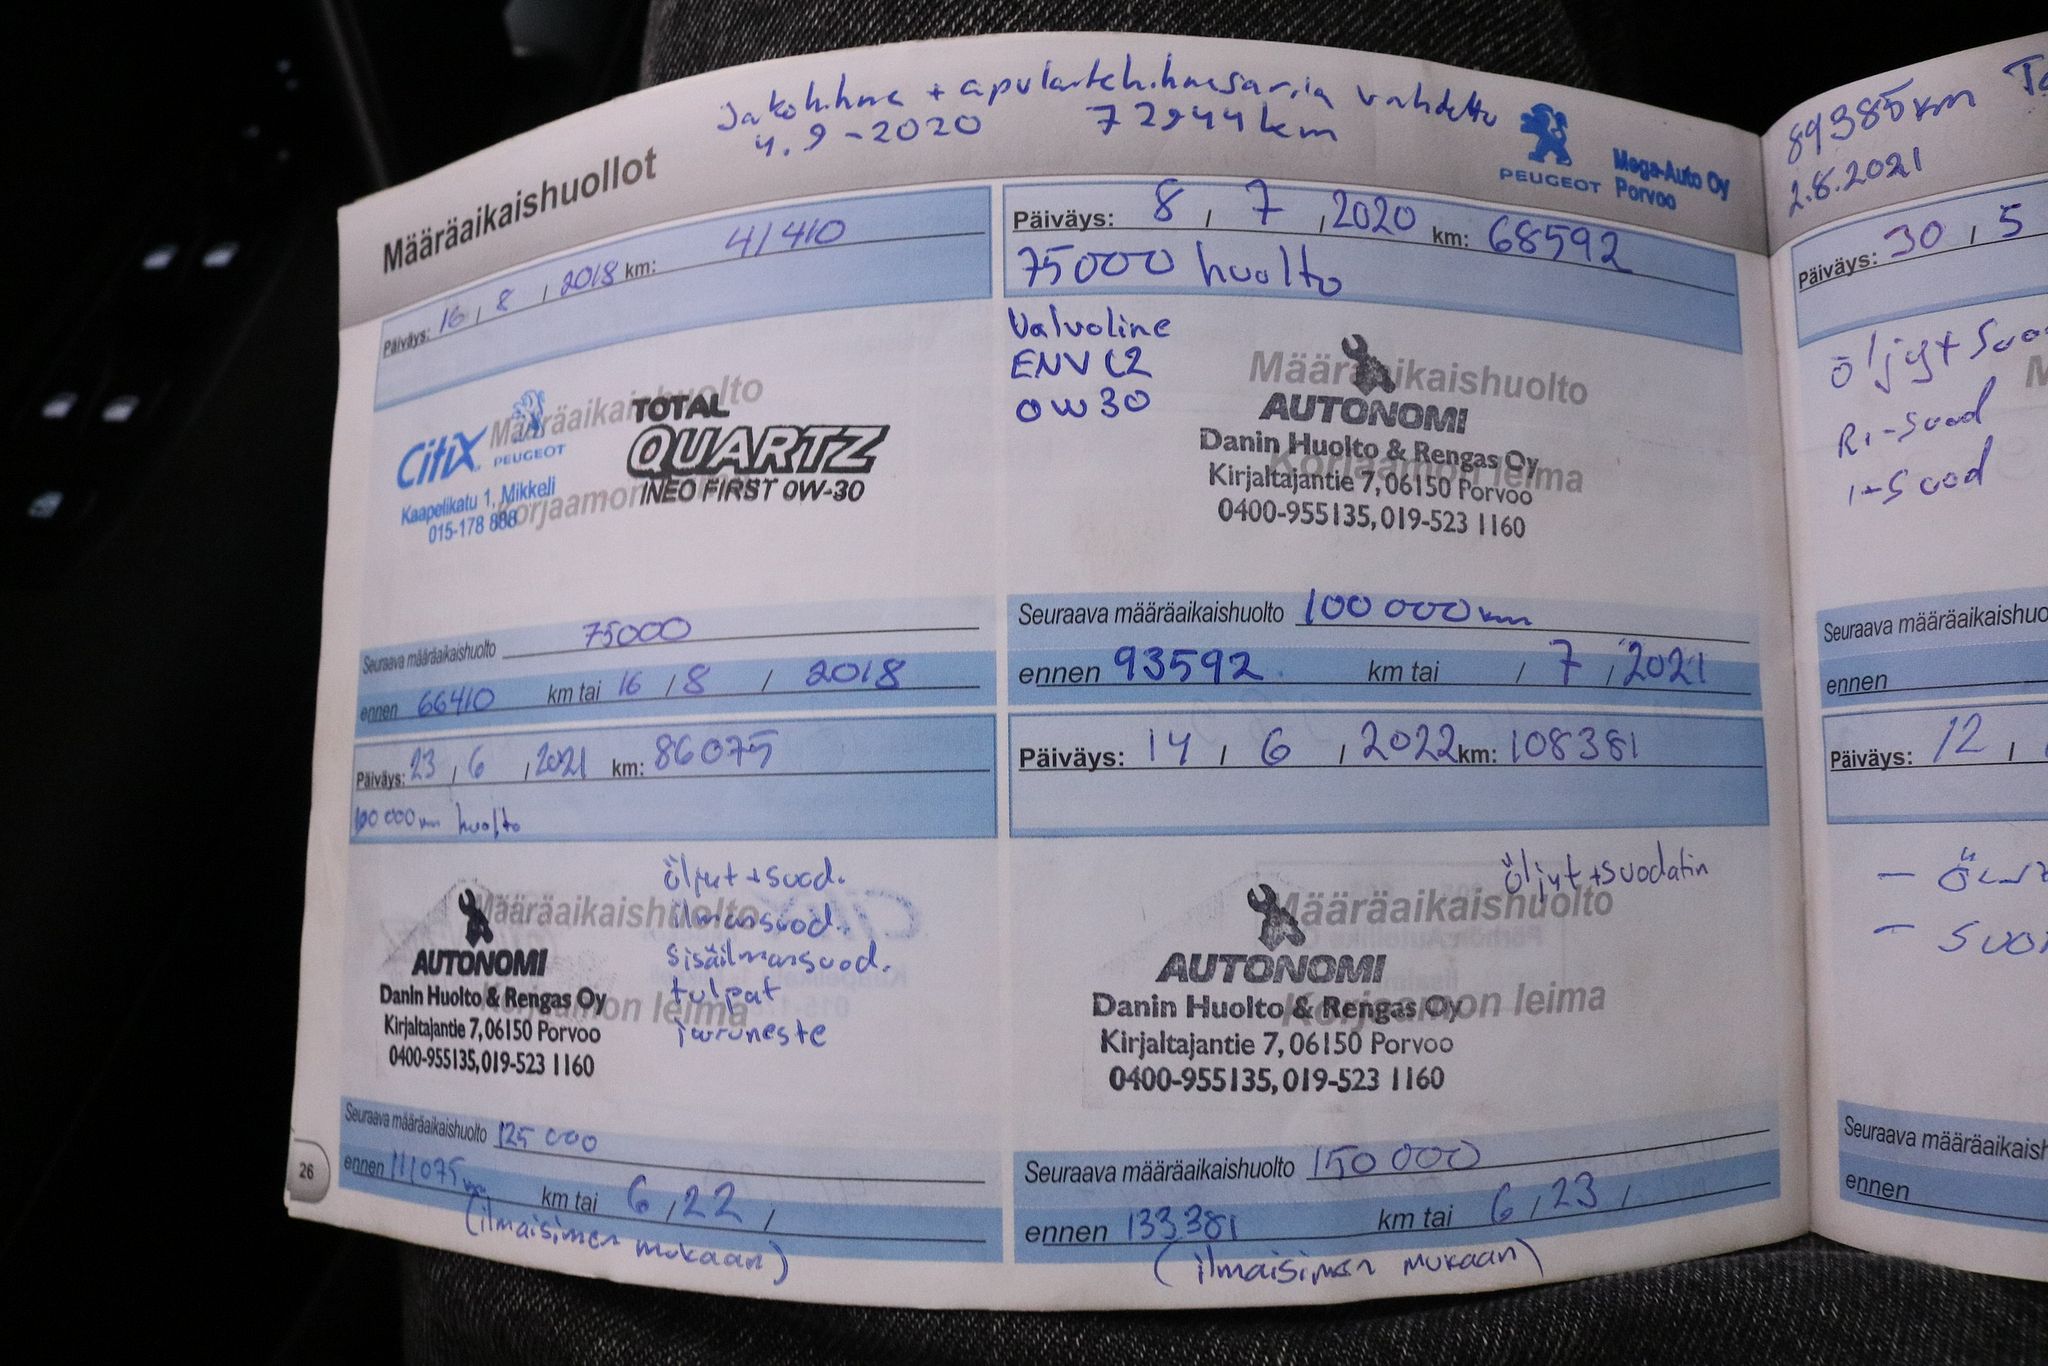 Jakohihna + apulaitehihnasarja vaihdettu
4.9-2020 72944km
PEUGEOT
Mega-Auto Oy
Porvoo
Määräaikaishuollot
Päiväys: 16 / 8 / 2018 km: 41410
Määräaikaishuolto
Korjaamon
CitiX
PEUGEOT
Kaapelikatu 1, Mikkeli
015-178 888
TOTAL
QUARTZ
INEO FIRST 0W-30
Seuraava määräaikaishuolto 75000
ennen 66410 km tai 16 / 8 / 2018
Päiväys: 8 / 7 / 2020 km: 68592
75000 huolto
Valvoline
ENV C2
0W30
Määräaikaishuolto
Korjaamon leima
AUTONOMI
Danin Huolto & Rengas Oy
Kirjaltajantie 7, 06150 Porvoo
0400-955135, 019-523 1160
Seuraava määräaikaishuolto 100 000km
ennen 93592 km tai / 7 / 2021
Päiväys: 23 / 6 / 2021 km: 86075
100 000km huolto
Määräaikaishuolto
Korjaamon leima
AUTONOMI
Danin Huolto & Rengas Oy
Kirjaltajantie 7, 06150 Porvoo
0400-955135, 019-523 1160
öljyt+suod.
ilmansuod.
sisäilmansuod.
tulpat
jarruneste
Seuraava määräaikaishuolto 125 000
ennen 111075km km tai 6 / 22 /
(ilmaisimen mukaan)
26
Päiväys: 14 / 6 / 2022 km: 108381
öljyt+suodatin
Määräaikaishuolto
Korjaamon leima
AUTONOMI
Danin Huolto & Rengas Oy
Kirjaltajantie 7, 06150 Porvoo
0400-955135, 019-523 1160
Seuraava määräaikaishuolto 150 000
ennen 133381 km tai 6 / 23 /
(ilmaisimen mukaan)
89385km
2.8.2021
Päiväys: 30 / 5
öljyt+
Ri-suod
i-suod
Seuraava määräaikaishuolto
ennen
Päiväys: 12 /
Seuraava määräaikaish
ennen